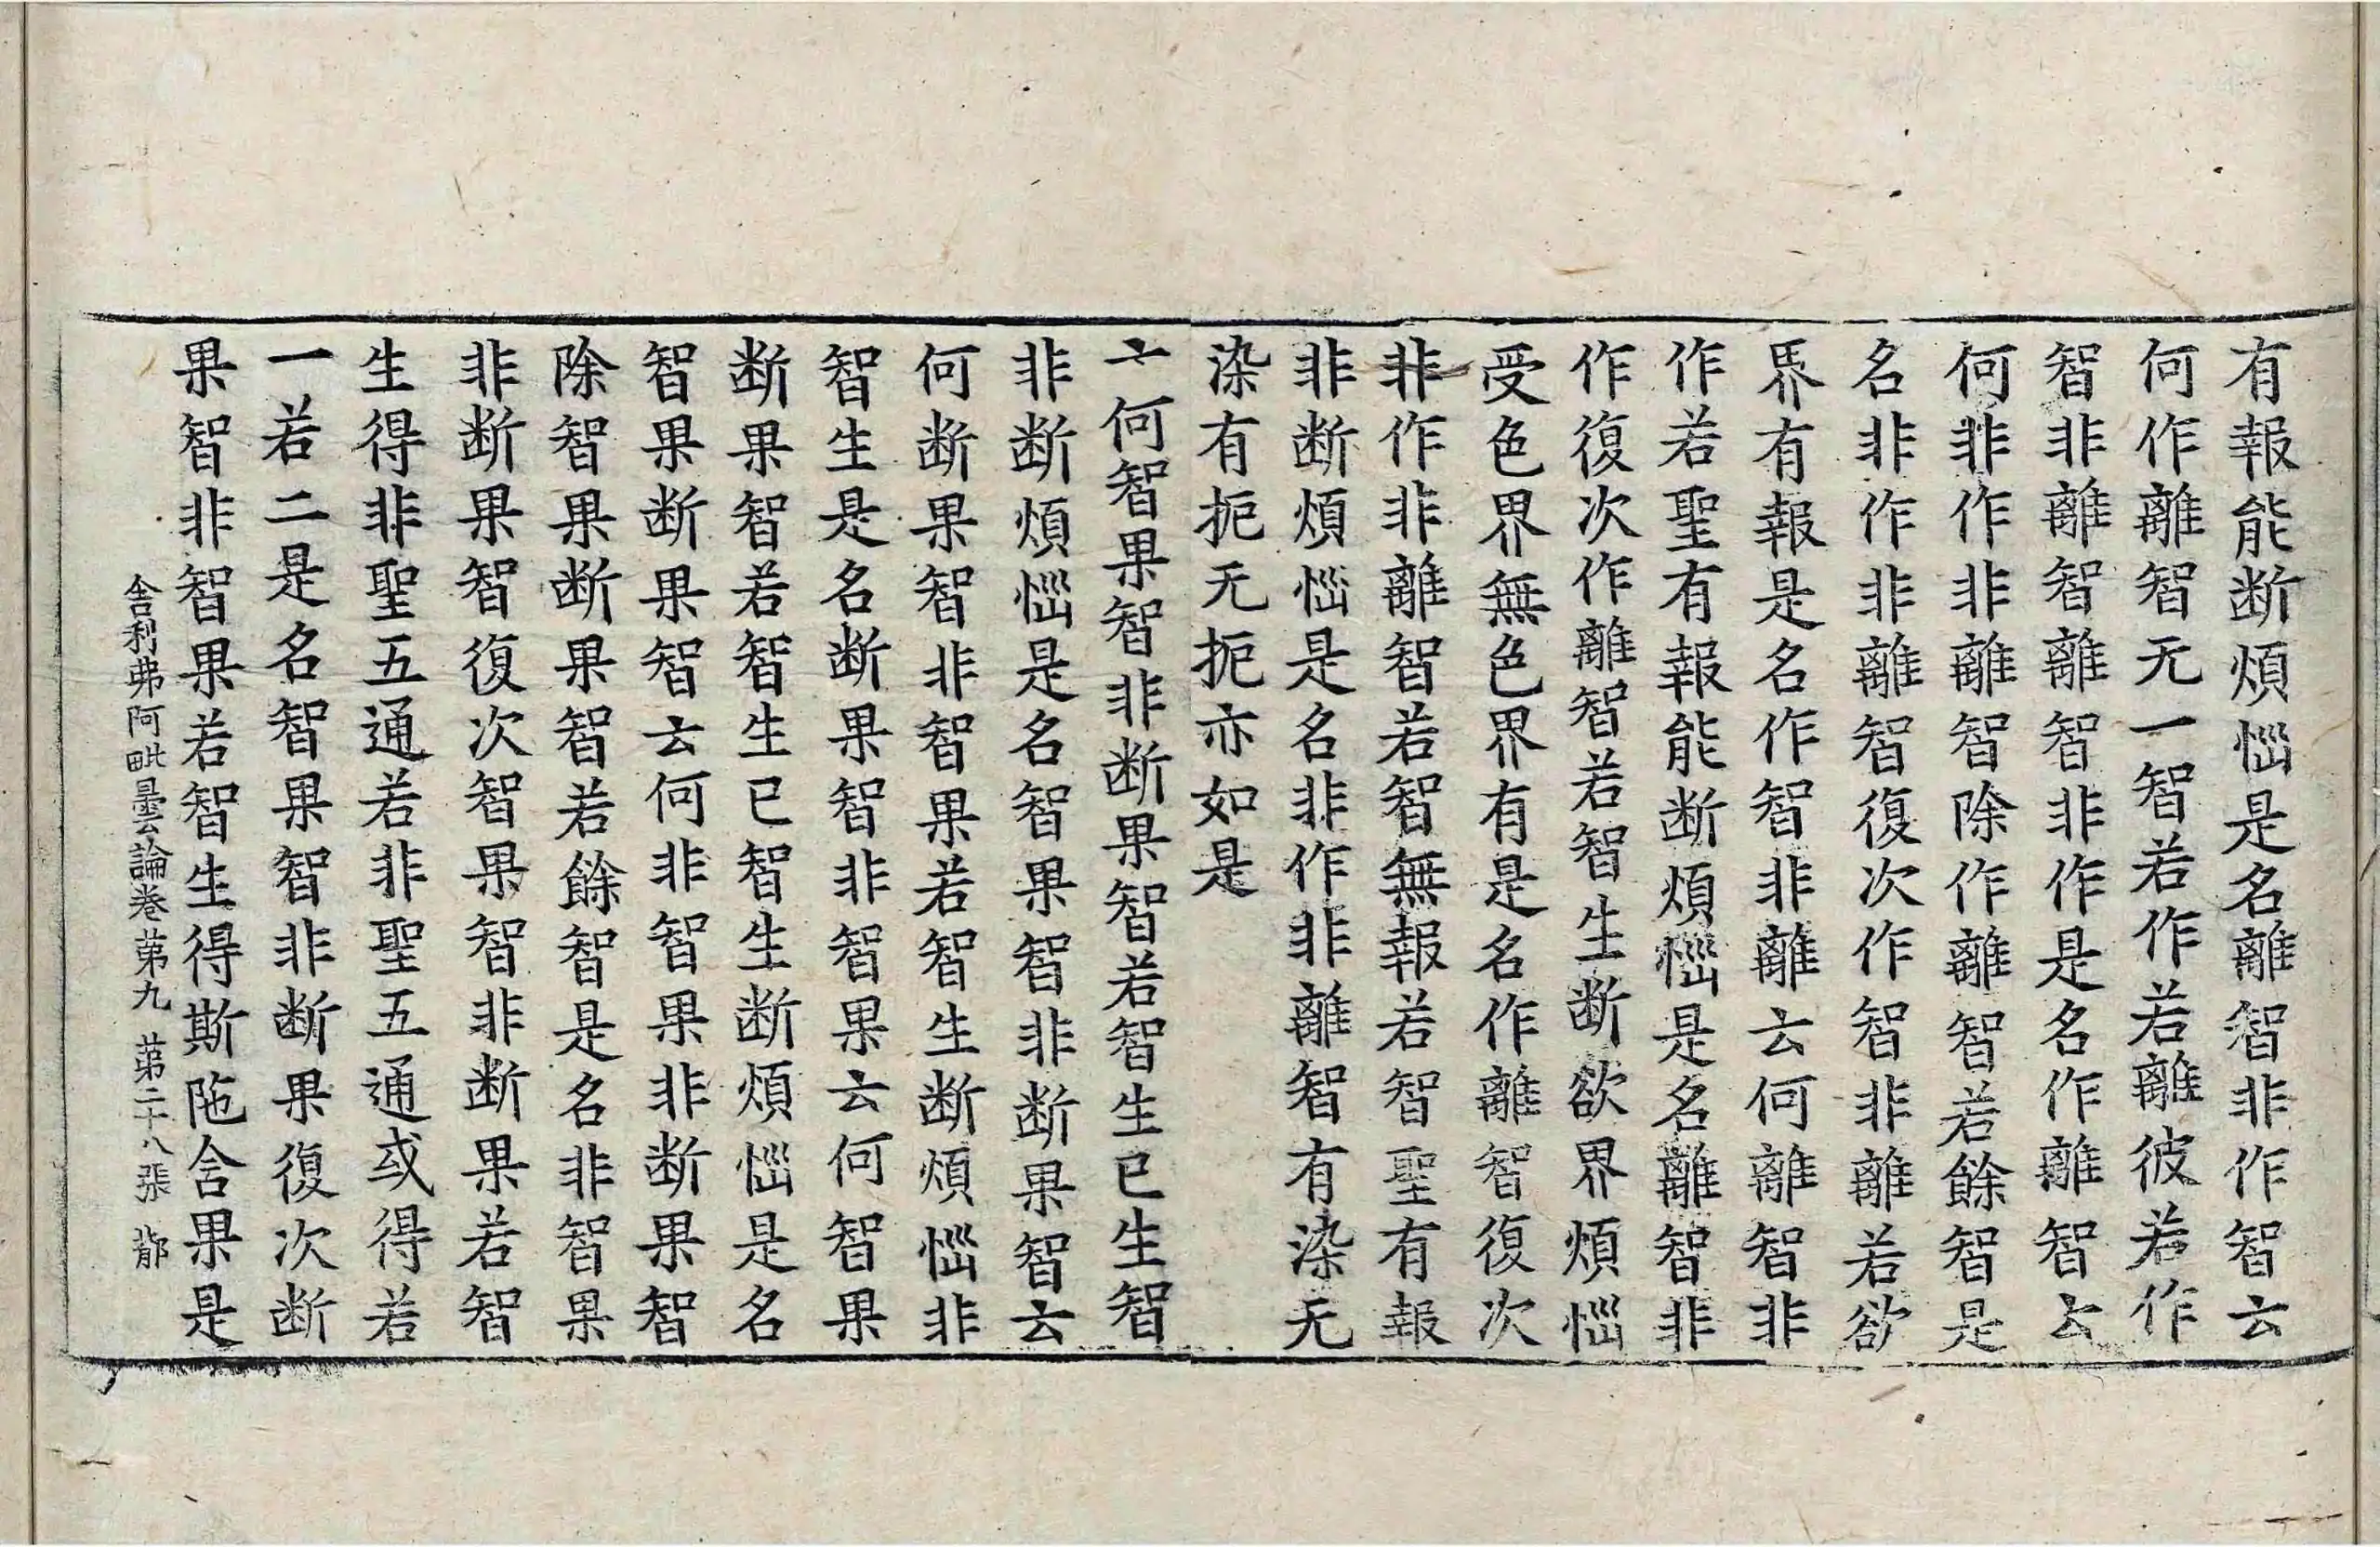 有報能断煩惱是名離智非作智云
何作離智无一智若作若離彼若作
智非離智離智非作是名作離智云
何非作非離智除作離智若餘智是
名非作非離智復次作智非離若欲
界有報是名作智非離云何離智非
作若聖有報能断煩惱是名離智非
作復次作離智若智生断欲界煩惱
受色界無色界有是名作離智復次
非作非離智若智無報若智聖有報
非断煩惱是名非作非離智有染无
染有扼无扼亦如是
云何智果智非断果智若智生已生智
非断煩惱是名智果智非断果智云
何断果智非智果若智生断煩惱非
智生是名断果智非智果云何智果
断果智若智生已智生断煩惱是名
智果断果智云何非智果非断果智
除智果断果智若餘智是名非智果
非断果智復次智果智非断果若智
生得非聖五通若非聖五通或得若
一若二是名智果智非断果復次断
果智非智果若智生得斯陁含果是
舍利弗阿毗曇論卷苐九 苐二十八張 鄁